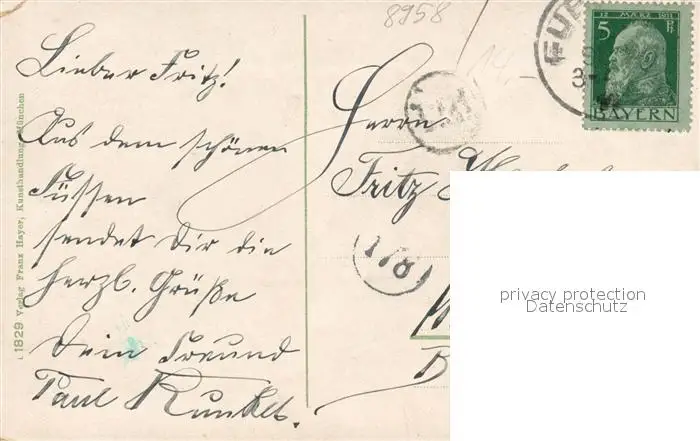 8958
14,-
Lieber Fritz!
Aus dem schönen
Füssen
sendet Dir die
herzl. Grüße
Dein Freund
Paul Kunkel.
Herrn
Fritz
178
FÜ
3-
12 MÄRZ 1911
5 Pf.
BAYERN
L 1829 Verlag Franz Hayer, Kunsthandlung, München
privacy protection
Datenschutz